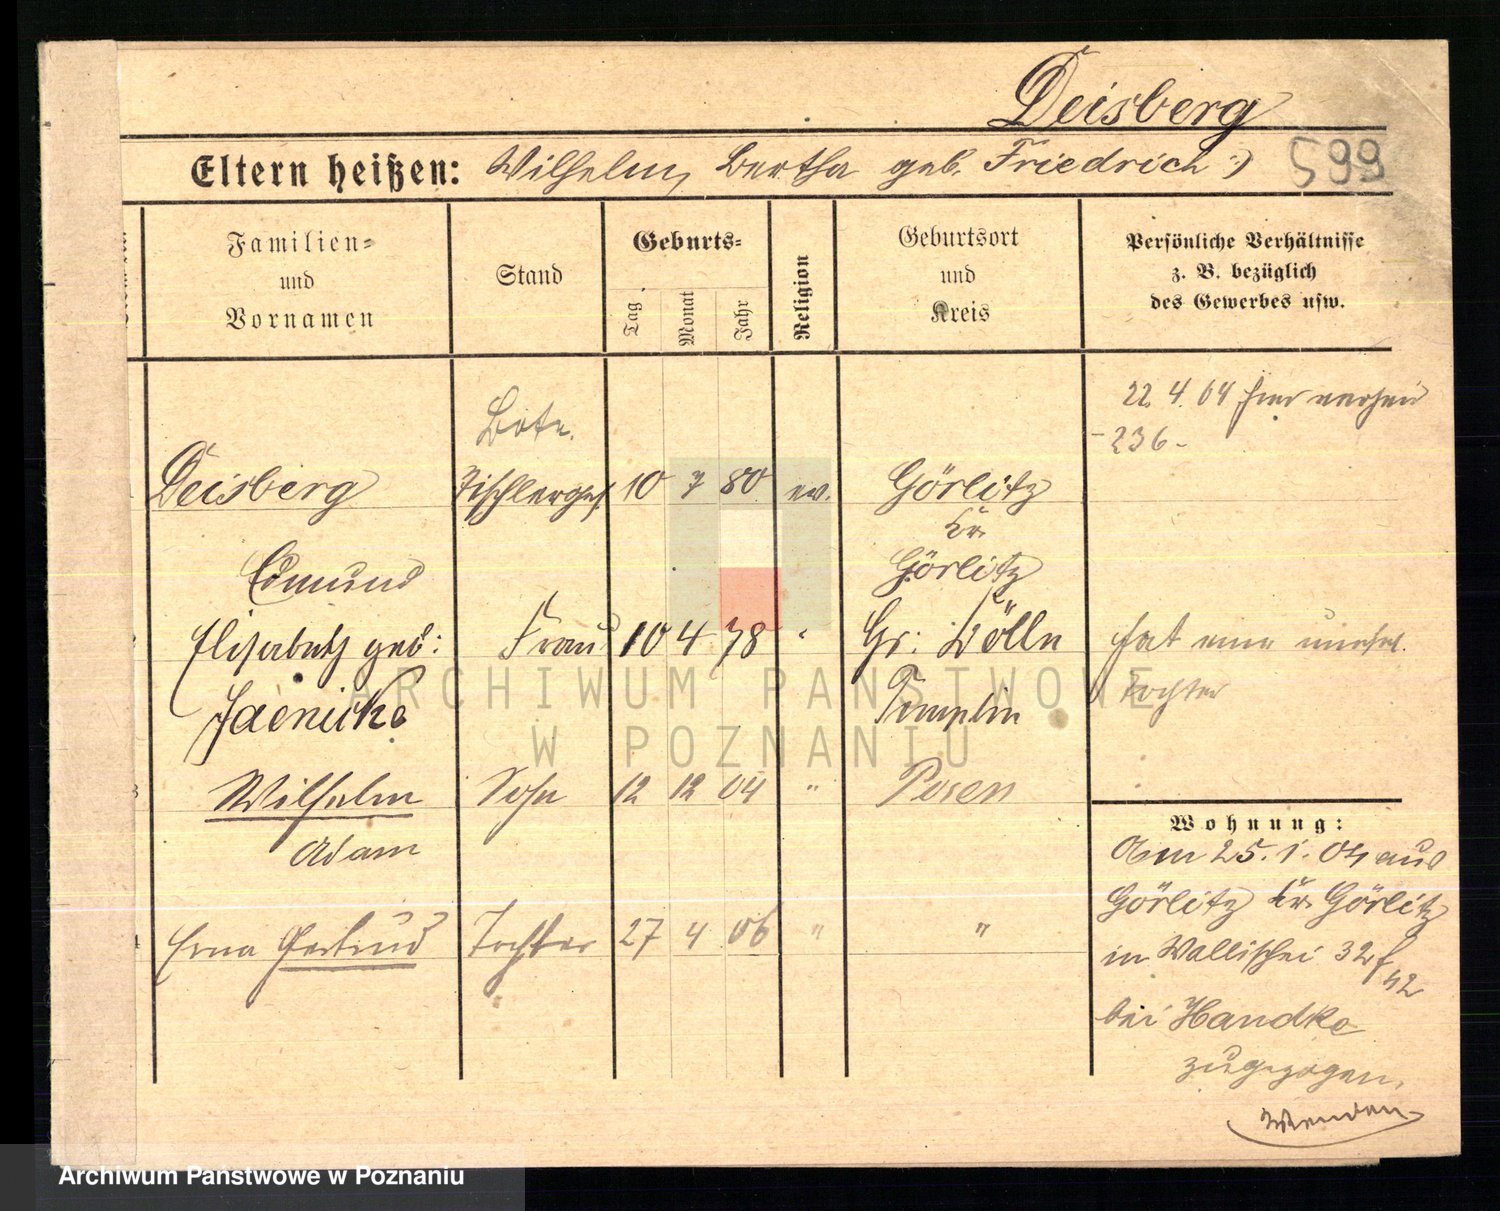 Deisberg
Eltern heißen: Wilhelm, Bertha geb. Friedrich :)
599
Familien- und Vornamen
Stand
Geburts-
Tag
Monat
Jahr
Religion
Geburtsort und Kreis
Persönliche Verhältnisse
z. B. bezüglich
des Gewerbes usw.
22. 4. 04 hier
-236-
Bote.
Deisberg Tischlerges. 10 7 80 ev. Görlitz
Kr.
Edmund Görlitz
Elisabeth geb: Frau 10 4 78 " Gr: Dölln hat eine unehel.
Jaenicke Templin Tochter
Wilhelm Sohn 12 12 04 " Posen
Adam
Erna Gertrud Tochter 27 4 06 " "
Wohnung:
Am 25. 1. 04 aus
Görlitz Kr. Görlitz
in Wallischei 32
bei Handke
zugezogen.
Wenden
ARCHIWUM PAŃSTWOWE
W POZNANIU
Archiwum Państwowe w Poznaniu